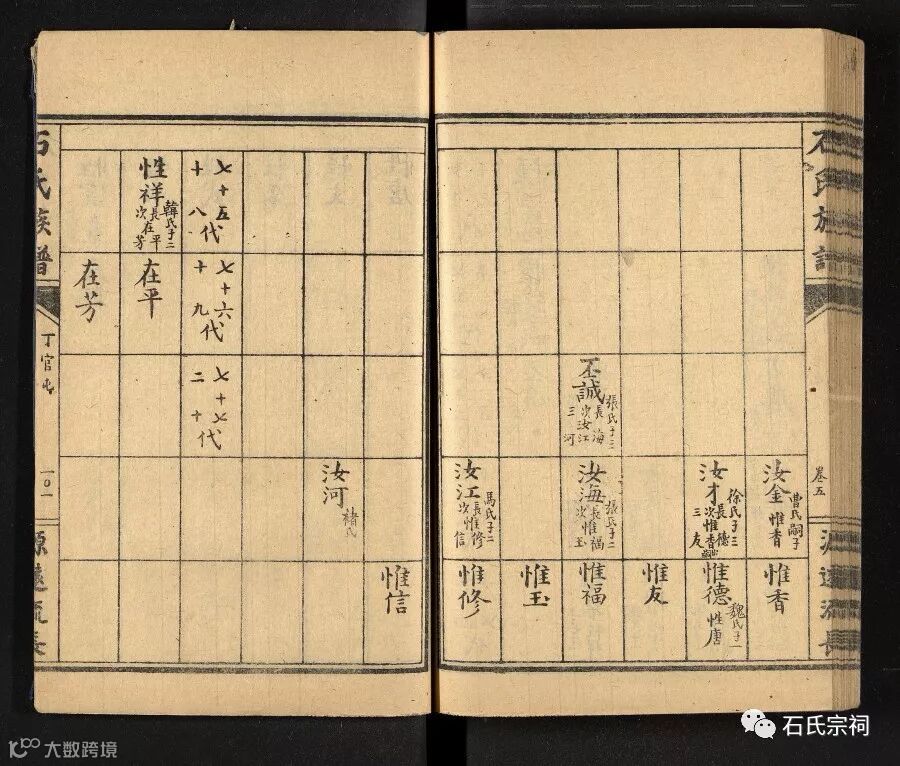 石氏族譜
卷五
源遠流長
丕誠
張氏子三
長海
次汝江
三河
汝金
曹氏嗣子
惟香
汝才
徐氏子三
長惟德
次惟香
三友
汝海
張氏子二
長惟福
次玉
汝江
馬氏子二
長惟修
次信
汝河
褚氏
惟香
惟德
魏氏子一
性唐
惟友
惟福
惟玉
惟修
惟信
七十五代
十八
七十六代
十九
七十七代
二十
性祥
韓氏子二
長在平
次芳
在平
在芳
石氏族譜
丁官屯
一〇一
源遠流長
石氏宗祠
大数跨境